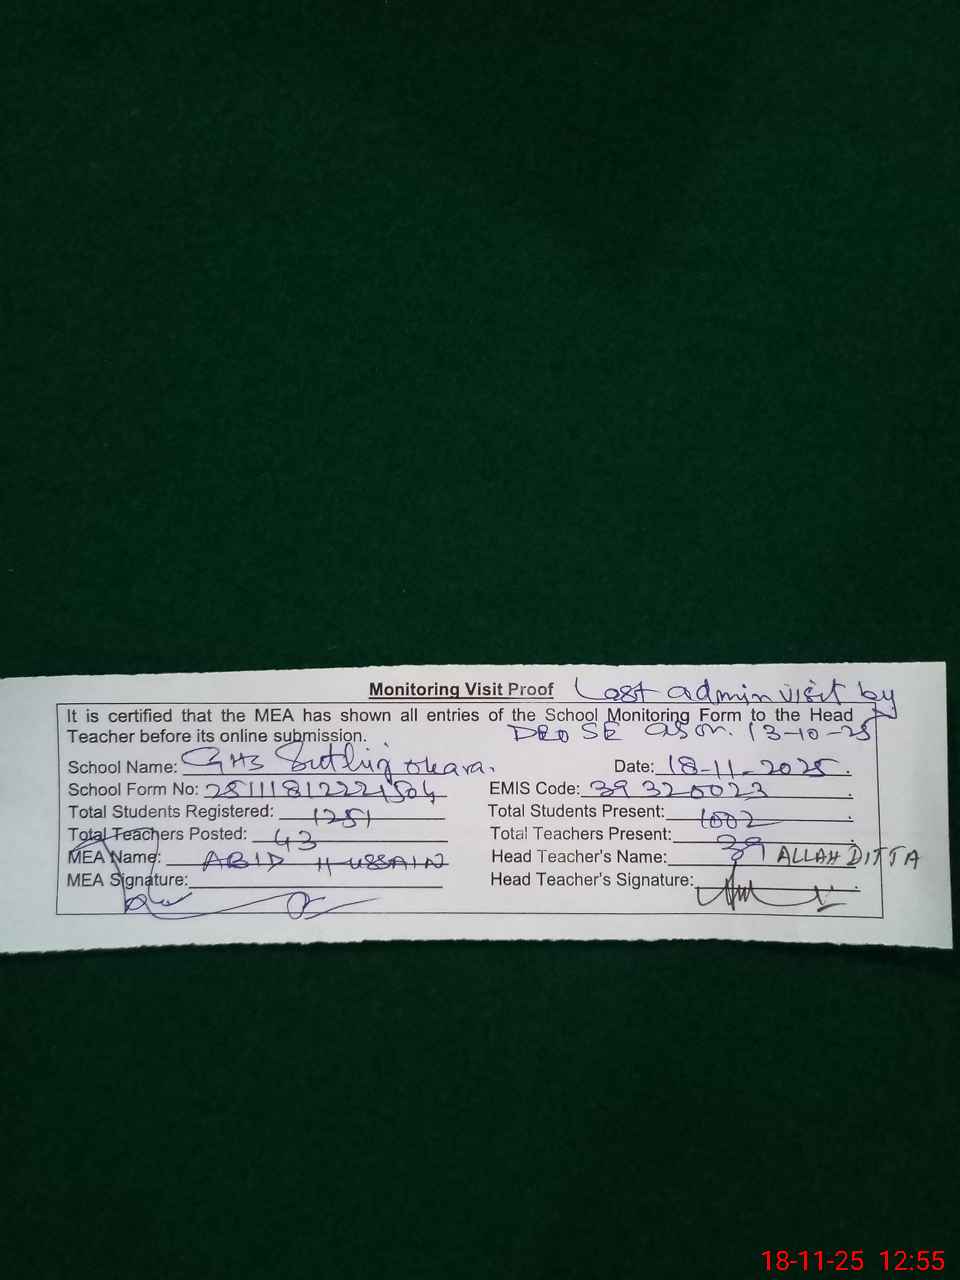 Monitoring Visit Proof Last admin visit by
It is certified that the MEA has shown all entries of the School Monitoring Form to the Head
Teacher before its online submission. DEO SE as on. 13-10-25
School Name: GHS Sutluj okara. Date: 18-11-2025
School Form No: EMIS Code: 39320023
Total Students Registered: 1251 Total Students Present: 1002
Total Teachers Posted: 43 Total Teachers Present: 39
MEA Name: ABID HUSSAIN Head Teacher's Name: ALLAH DITTA
MEA Signature: Head Teacher's Signature:
18-11-25 12:55